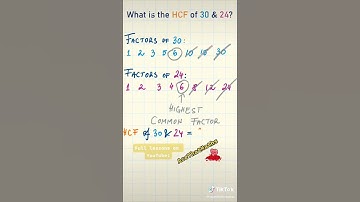 What is the HCF of 30 & 24?
FACTORS OF 30:
1 2 3 5 6 10 15 30
FACTORS OF 24:
1 2 3 4 6 8 12 24
HIGHEST
COMMON FACTOR
HCF of 30 & 24 =
Full lessons on
YouTube:
TikTok